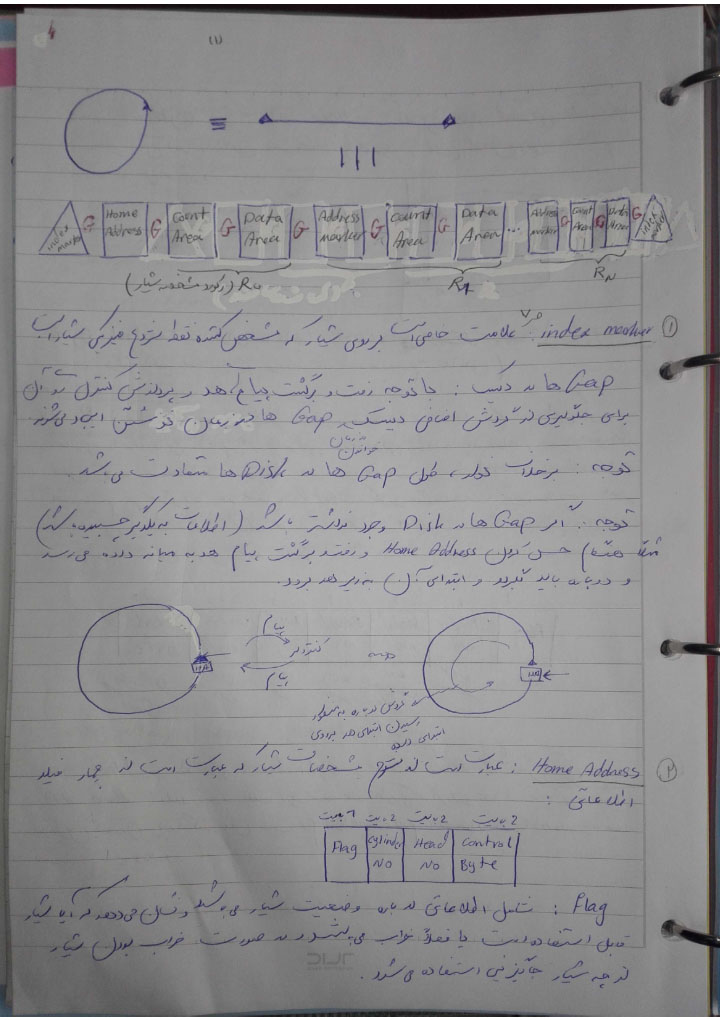 Index marker
G
Home Address
G
Count Area
G
Data Area
G
Address marker
G
Count Area
G
Data Area
...
Address marker
G
Count Area
G
Data Area
G
index marker
R0 (رکورد مشخصه شیار)
R1
RN
① index marker: علامت خاصی است بر روی شیار که مشخص کننده نقطه شروع فیزیکی شیار است
Gap ها در دیسک: با توجه رفت و برگشت پیام هد و پردازش کنترلر آن
برای جلوگیری از گردش اضافی دیسک، Gap ها در زمان نوشتن ایجاد می‌شوند.
خواندن
توجه: برخلاف نوار، طول Gap ها در Disk ها متفاوت می‌باشد
توجه: اگر Gap ها در Disk وجود نداشته باشد (اطلاعات به یکدیگر چسبیده باشد)
حس کردن Home Address و رفت و برگشت پیام هد به میانه داده می‌رسد
و دوباره باید بگردد و ابتدای آن به زیر هد برود.
پیام
کنترلر
پیام
HA
HA
گردش دوباره به منظور
رسیدن ابتدای هد بر روی
ابتدای داده
② Home Address: عبارت است از مشخصات شیار که عبارت است از چهار فیلد
اطلاعاتی:
1 بایت 2 بایت 2 بایت 2 بایت
Flag
Cylinder No
Head No
Control Byte
Flag: شامل اطلاعاتی درباره وضعیت شیار می‌باشد و نشان می‌دهد که آیا شیار
قابل استفاده است یا فعلاً خراب می‌باشد و در صورت خراب بودن شیار
از چه شیار جایگزینی استفاده می‌شود.